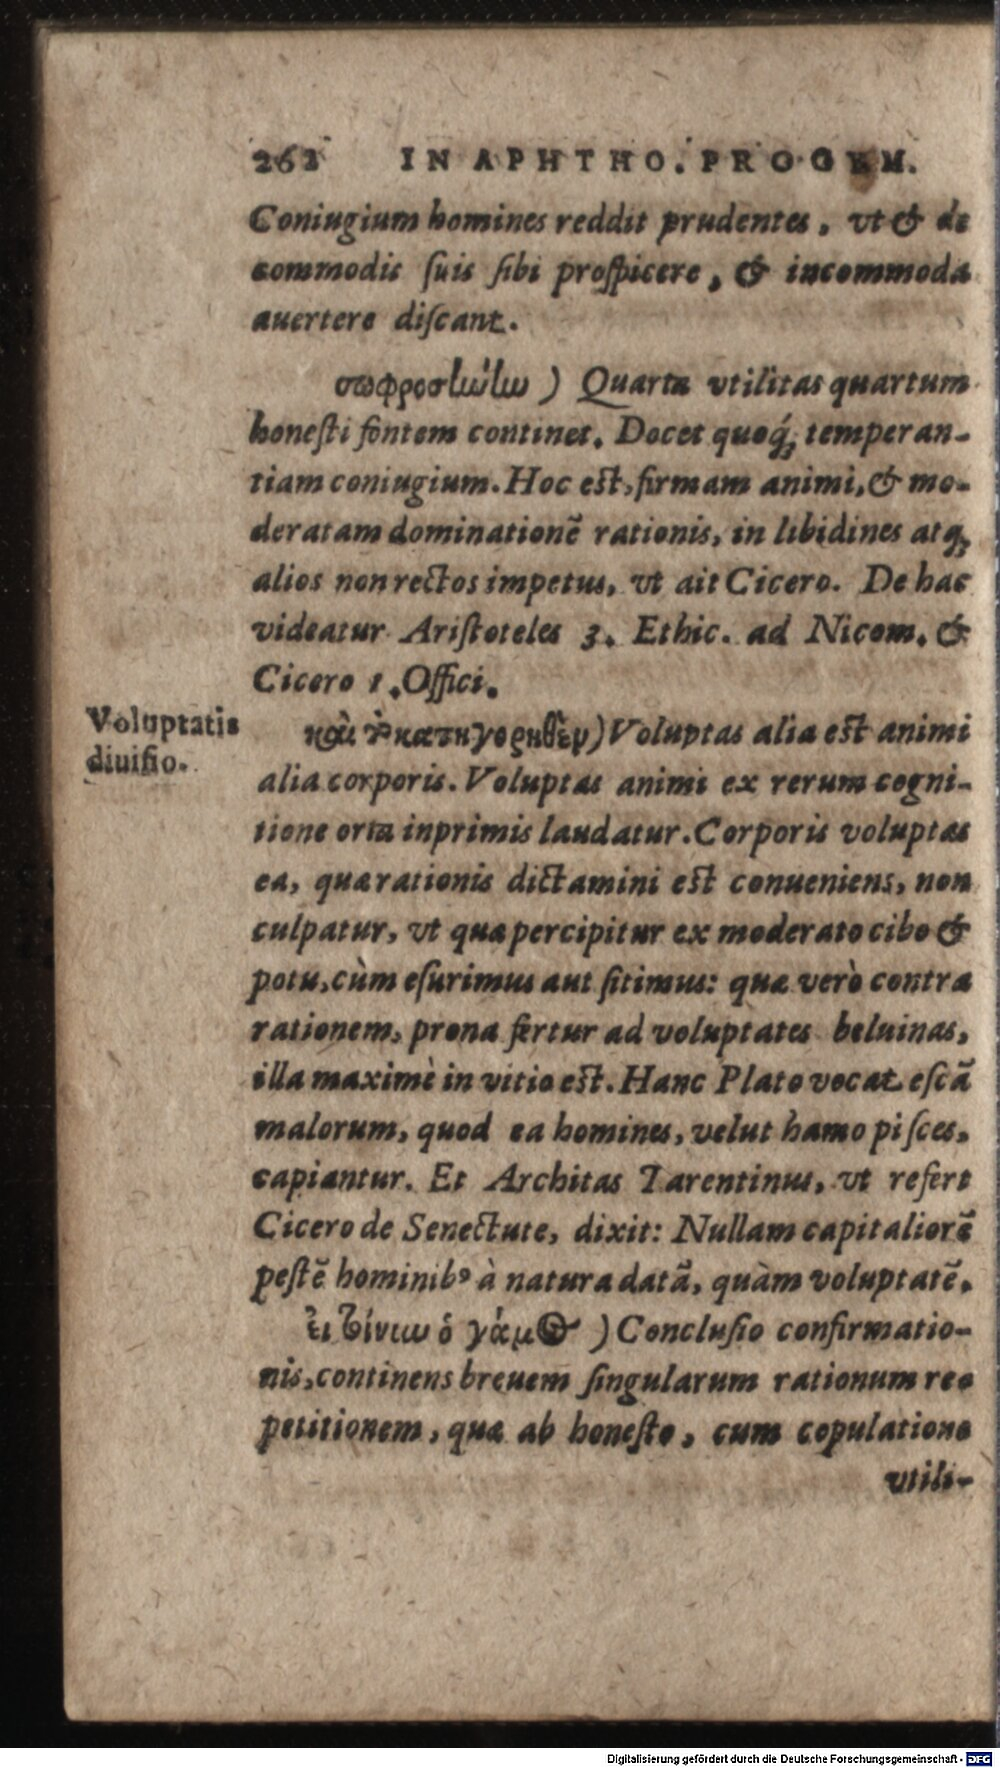 262 IN APHTHO. PROGEM.
Coniugium homines reddit prudentes, vt & de
commodis ſuis ſibi proſpicere, & incommoda
auertere diſcant.
σωφροσύνην ) Quarta vtilitas quartum
honeſti fontem continet. Docet quoq; temperan-
tiam coniugium. Hoc eſt, firmam animi, & mo-
deratam dominationē rationis, in libidines atq;
alios non rectos impetus, vt ait Cicero. De hac
videatur Ariſtoteles 3. Ethic. ad Nicom. &
Cicero 1. Offici.
Voluptatis
diuiſio.
καὶ τὸ κατηγορηθὲν) Voluptas alia eſt animi
alia corporis. Voluptas animi ex rerum cogni-
tione orta inprimis laudatur. Corporis voluptas
ea, quæ rationis dictamini eſt conueniens, non
culpatur, vt quæ percipitur ex moderato cibo &
potu, cùm eſurimus aut ſitimus: quæ verò contra
rationem, prona fertur ad voluptates beluinas,
illa maximè in vitio eſt. Hanc Plato vocat eſcā
malorum, quod ea homines, velut hamo piſces,
capiantur. Et Architas Tarentinus, vt refert
Cicero de Senectute, dixit: Nullam capitaliorē
peſtē hominibꝰ à natura datā, quàm voluptatē.
ὁ γάμος ) Concluſio confirmatio-
nis, continens breuem ſingularum rationum re-
petitionem, quæ ab honeſto, cum copulatione
vtili-
Digitalisierung gefördert durch die Deutsche Forschungsgemeinschaft - DFG